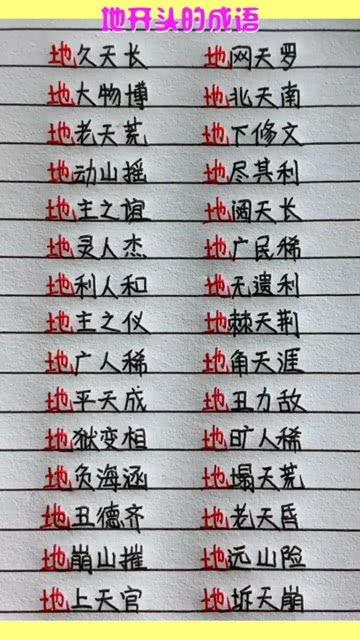 地开头的成语
地久天长 地网天罗
地大物博 地北天南
地老天荒 地下修文
地动山摇 地尽其利
地主之谊 地阔天长
地灵人杰 地广民稀
地利人和 地无遗利
地主之仪 地棘天荆
地广人稀 地角天涯
地平天成 地丑力敌
地狱变相 地旷人稀
地负海涵 地塌天荒
地丑德齐 地老天昏
地崩山摧 地远山险
地上天官 地坼天崩